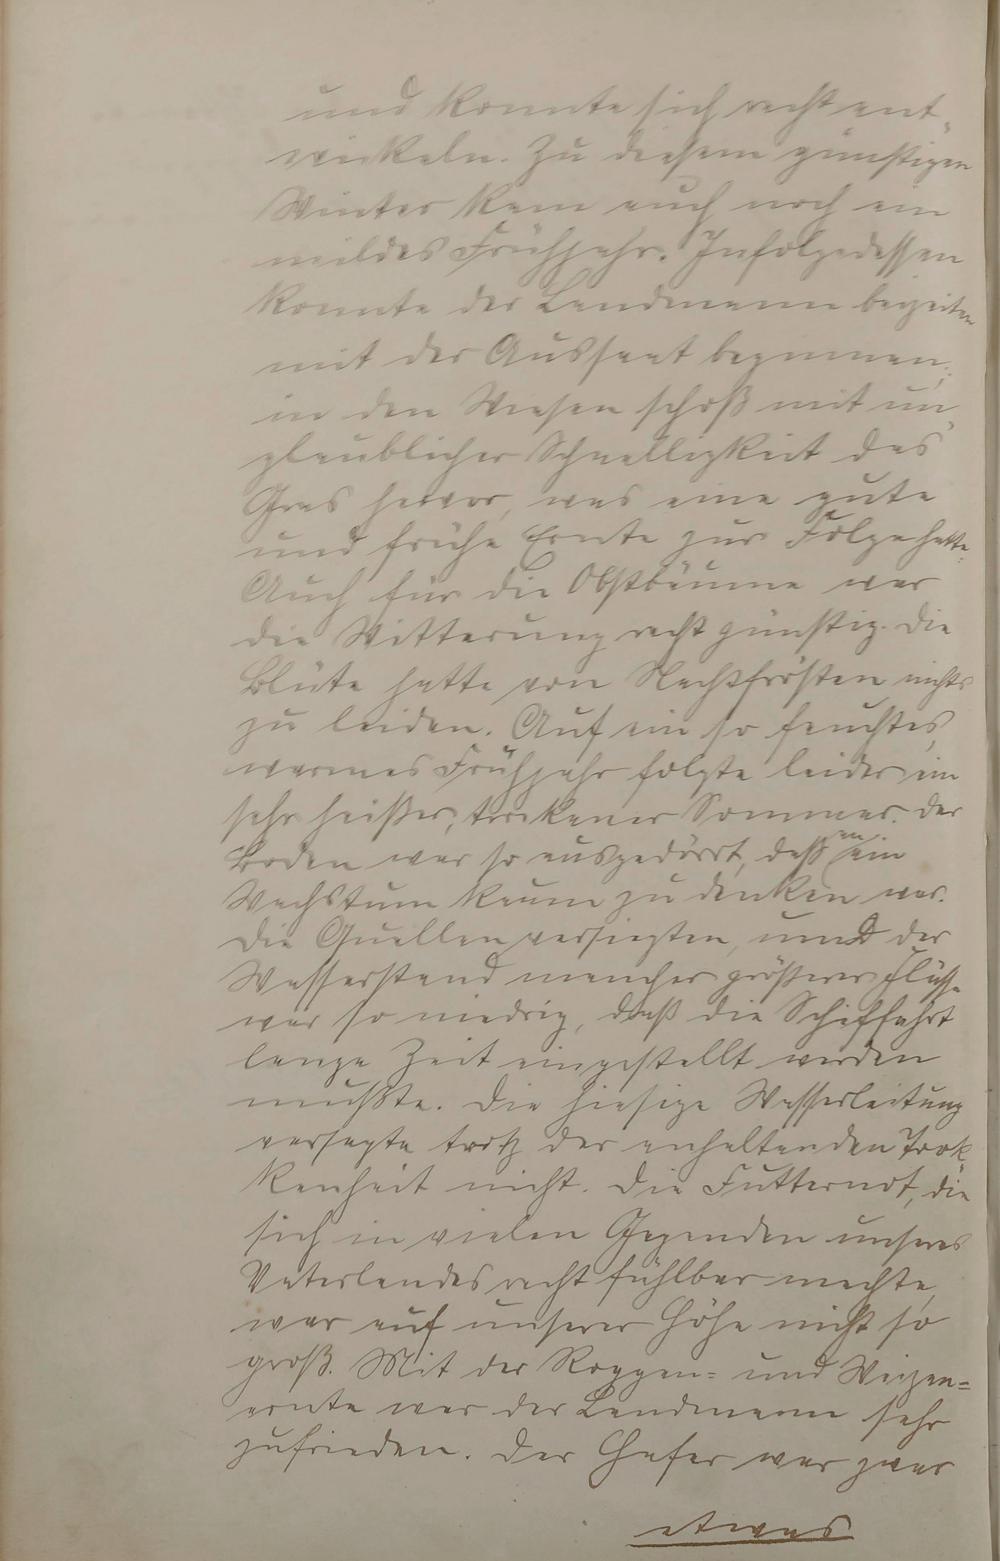 und konnte sich recht ent-
wickeln. Zu diesem günstigen
Winter kam auch noch ein
mildes Frühjahr. Infolgedessen
konnte der Landmann beizeiten
mit der Aussaat beginnen;
in den Wiesen schoß mit un-
glaublicher Schnelligkeit das
Gras hervor, was eine gute
und frühe Ernte zur Folge hatte.
Auch für die Obstbäume war
die Witterung recht günstig. Die
Blüte hatte von Nachtfrösten nichts
zu leiden. Auf ein so feuchtes,
warmes Frühjahr folgte leider ein
sehr heißer, trockener Sommer. Der
Boden war so ausgedörrt, daß an ein
Wachstum kaum zu denken war.
Die Quellen versiegten, und der
Wasserstand mancher größerer Flüsse
war so niedrig, daß die Schiffahrt
lange Zeit eingestellt werden
mußte. Die hiesige Wasserleitung
versagte trotz der anhaltenden Trok-
kenheit nicht. Die Futternot, die
sich in vielen Gegenden unseres
Vaterlandes recht fühlbar machte,
war auf unserer Höhe nicht so
groß. Mit der Roggen- und Weizen-
ernte war der Landmann sehr
zufrieden. Der Hafer war zwar
etwas